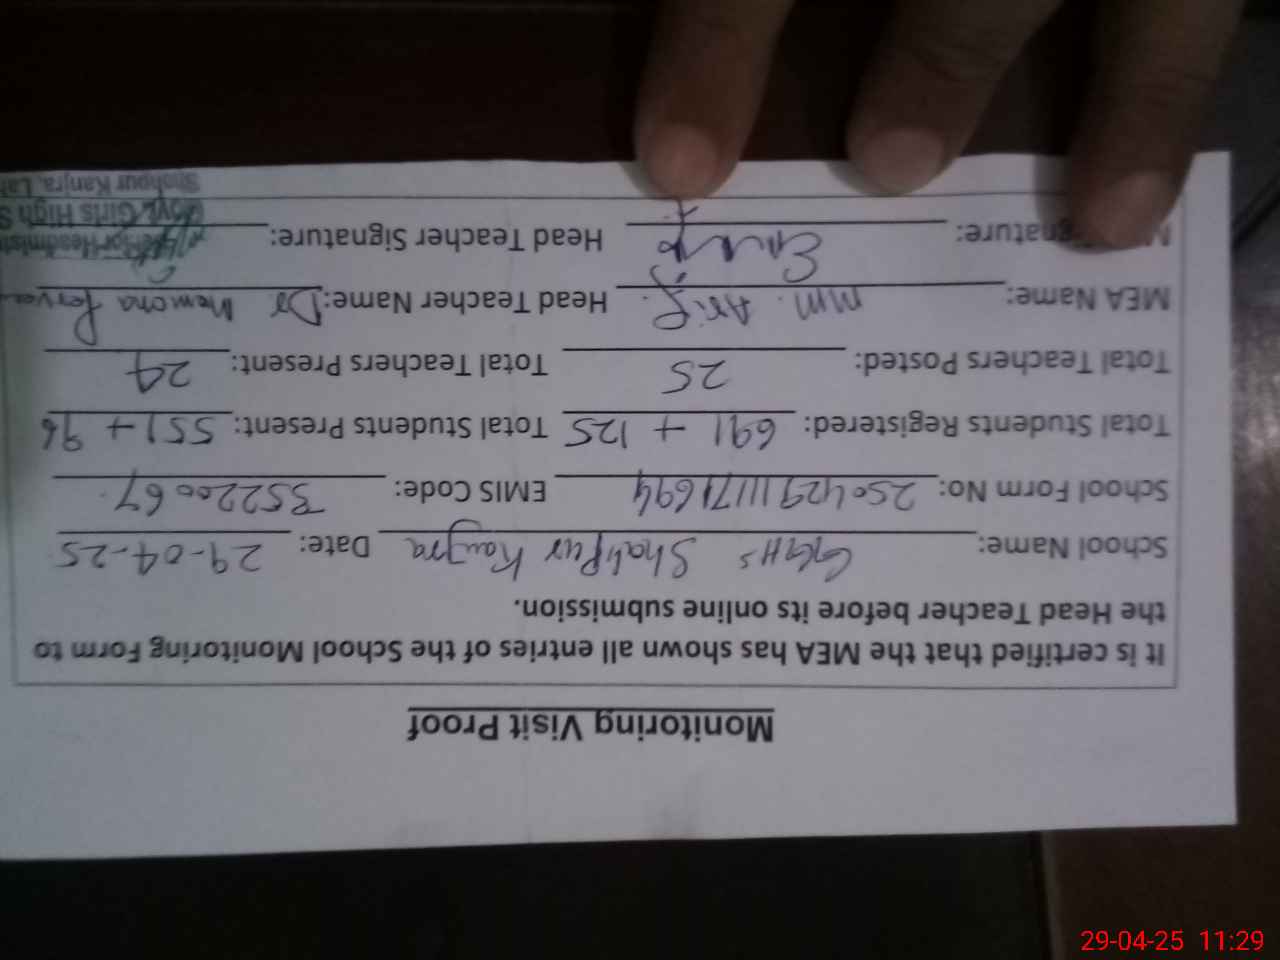 Monitoring Visit Proof
It is certified that the MEA has shown all entries of the School Monitoring Form to
the Head Teacher before its online submission.
School Name: GGHS Shahpur Kanjra Date: 29-04-25
School Form No: EMIS Code: 35220067
Total Students Registered: 691 + 125 Total Students Present: 551 + 96
Total Teachers Posted: 25 Total Teachers Present: 24
MEA Name: MM. Arif Head Teacher Name: Dr. Memona Perve
Signature: Head Teacher Signature:
Govt. Girls High S
Shahpur Kanjra, Lah
29-04-25 11:29